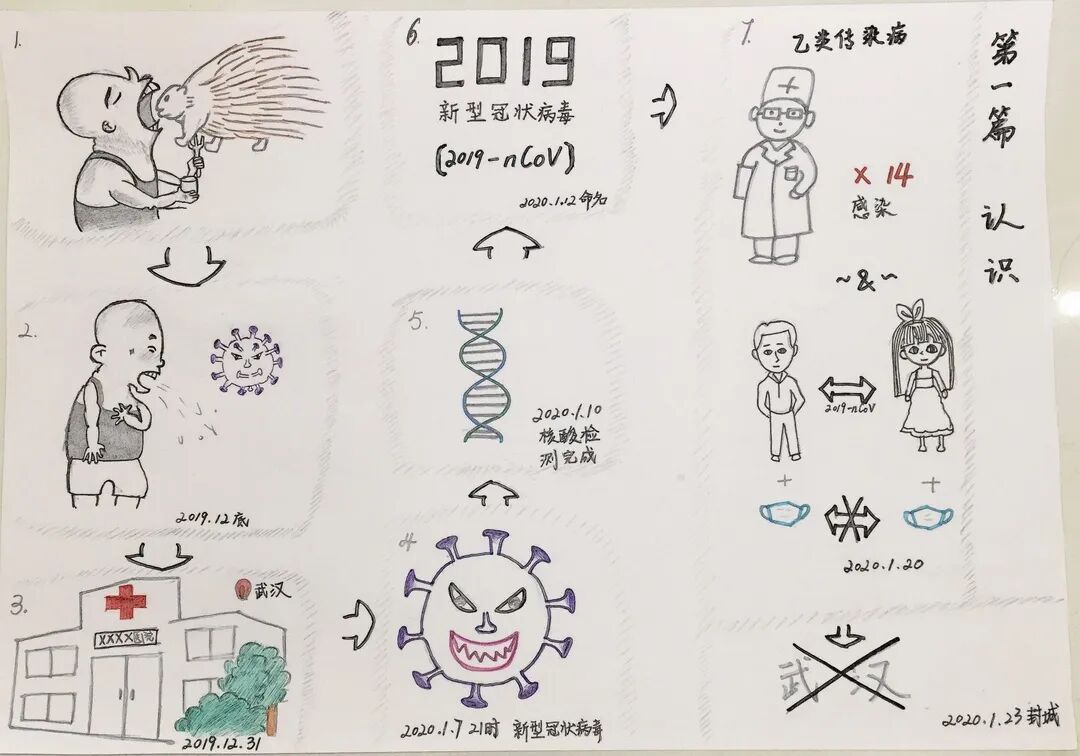 第一篇 认识
1.
2.
2019.12底
3.
武汉
XXXX医院
2019.12.31
4
2020.1.7 21时 新型冠状病毒
5.
2020.1.10
核酸检
测完成
6.
2019
新型冠状病毒
(2019-nCoV)
2020.1.12 命名
7.
乙类传染病
X 14
感染
~&~
2019-nCoV
+
+
2020.1.20
武汉
2020.1.23 封城